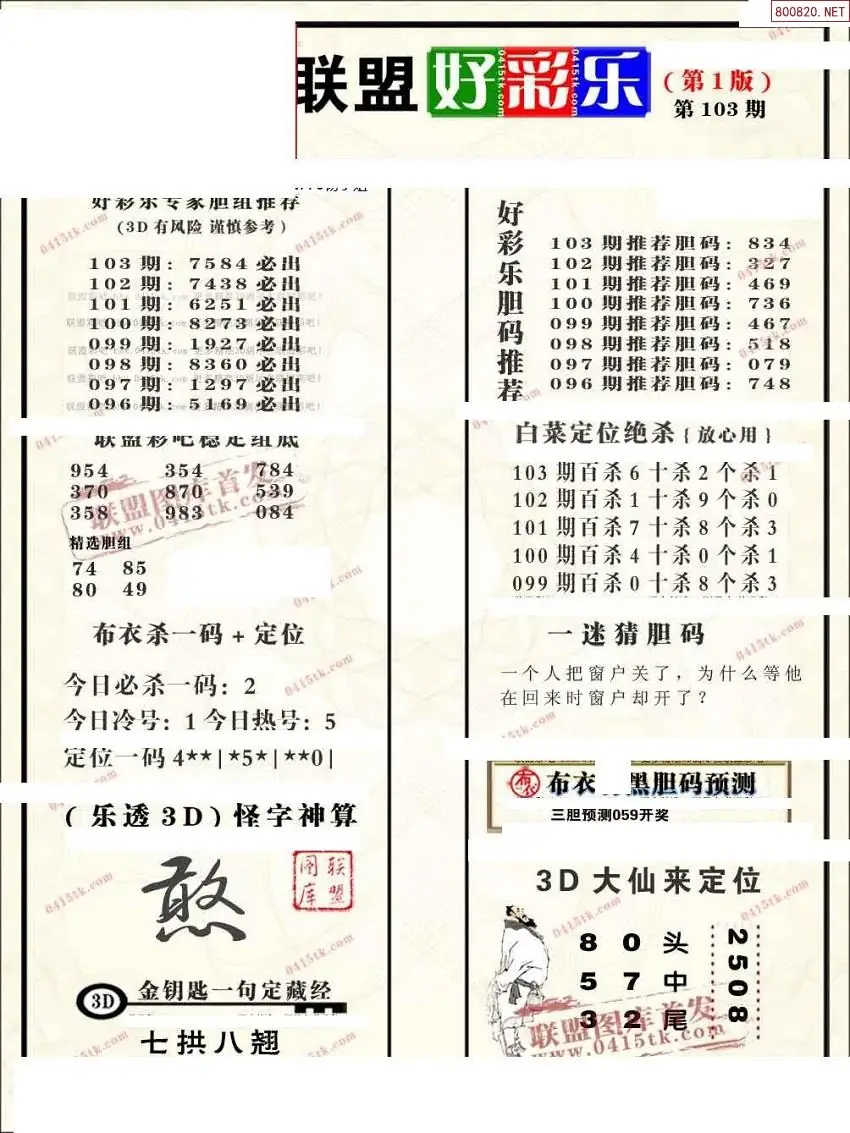 800820.NET
联盟好彩乐
(第1版)
第 103 期
好彩乐专家胆组推荐
(3D有风险 谨慎参考)
103期: 7584必出
102期: 7438必出
101期: 6251必出
100期: 8273必出
099期: 1927必出
098期: 8360必出
097期: 1297必出
096期: 5169必出
联盟彩吧稳定组底
954 354 784
370 870 539
358 983 084
精选胆组
74 85
80 49
布衣杀一码+定位
今日必杀一码: 2
今日冷号: 1 今日热号: 5
定位一码 4**|*5*|**0|
(乐透3D)怪字神算
憨
联盟图库
3D
金钥匙一句定藏经
七拱八翘
好彩乐胆码推荐
103期推荐胆码: 834
102期推荐胆码: 327
101期推荐胆码: 469
100期推荐胆码: 736
099期推荐胆码: 467
098期推荐胆码: 518
097期推荐胆码: 079
096期推荐胆码: 748
白菜定位绝杀{放心用}
103期百杀6十杀2个杀1
102期百杀1十杀9个杀0
101期百杀7十杀8个杀3
100期百杀4十杀0个杀1
099期百杀0十杀8个杀3
一迷猜胆码
一个人把窗户关了，为什么等他
在回来时窗户却开了？
布衣 黑胆码预测
三胆预测059开奖
3D大仙来定位
8 0 头
5 7 中
3 2 尾
2508
联盟图库首发
www.0415tk.com
0415tk.com